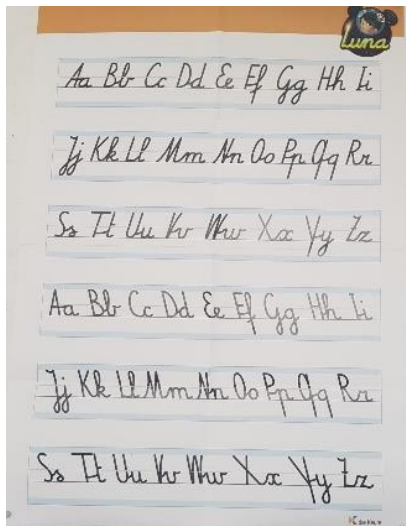 Luna
Aa Bb Cc Dd Ee Ff Gg Hh Ii
Jj Kk Ll Mm Nn Oo Pp Qq Rr
Ss Tt Uu Vv Ww Xx Yy Zz
Aa Bb Cc Dd Ee Ff Gg Hh Ii
Jj Kk Ll Mm Nn Oo Pp Qq Rr
Ss Tt Uu Vv Ww Xx Yy Zz